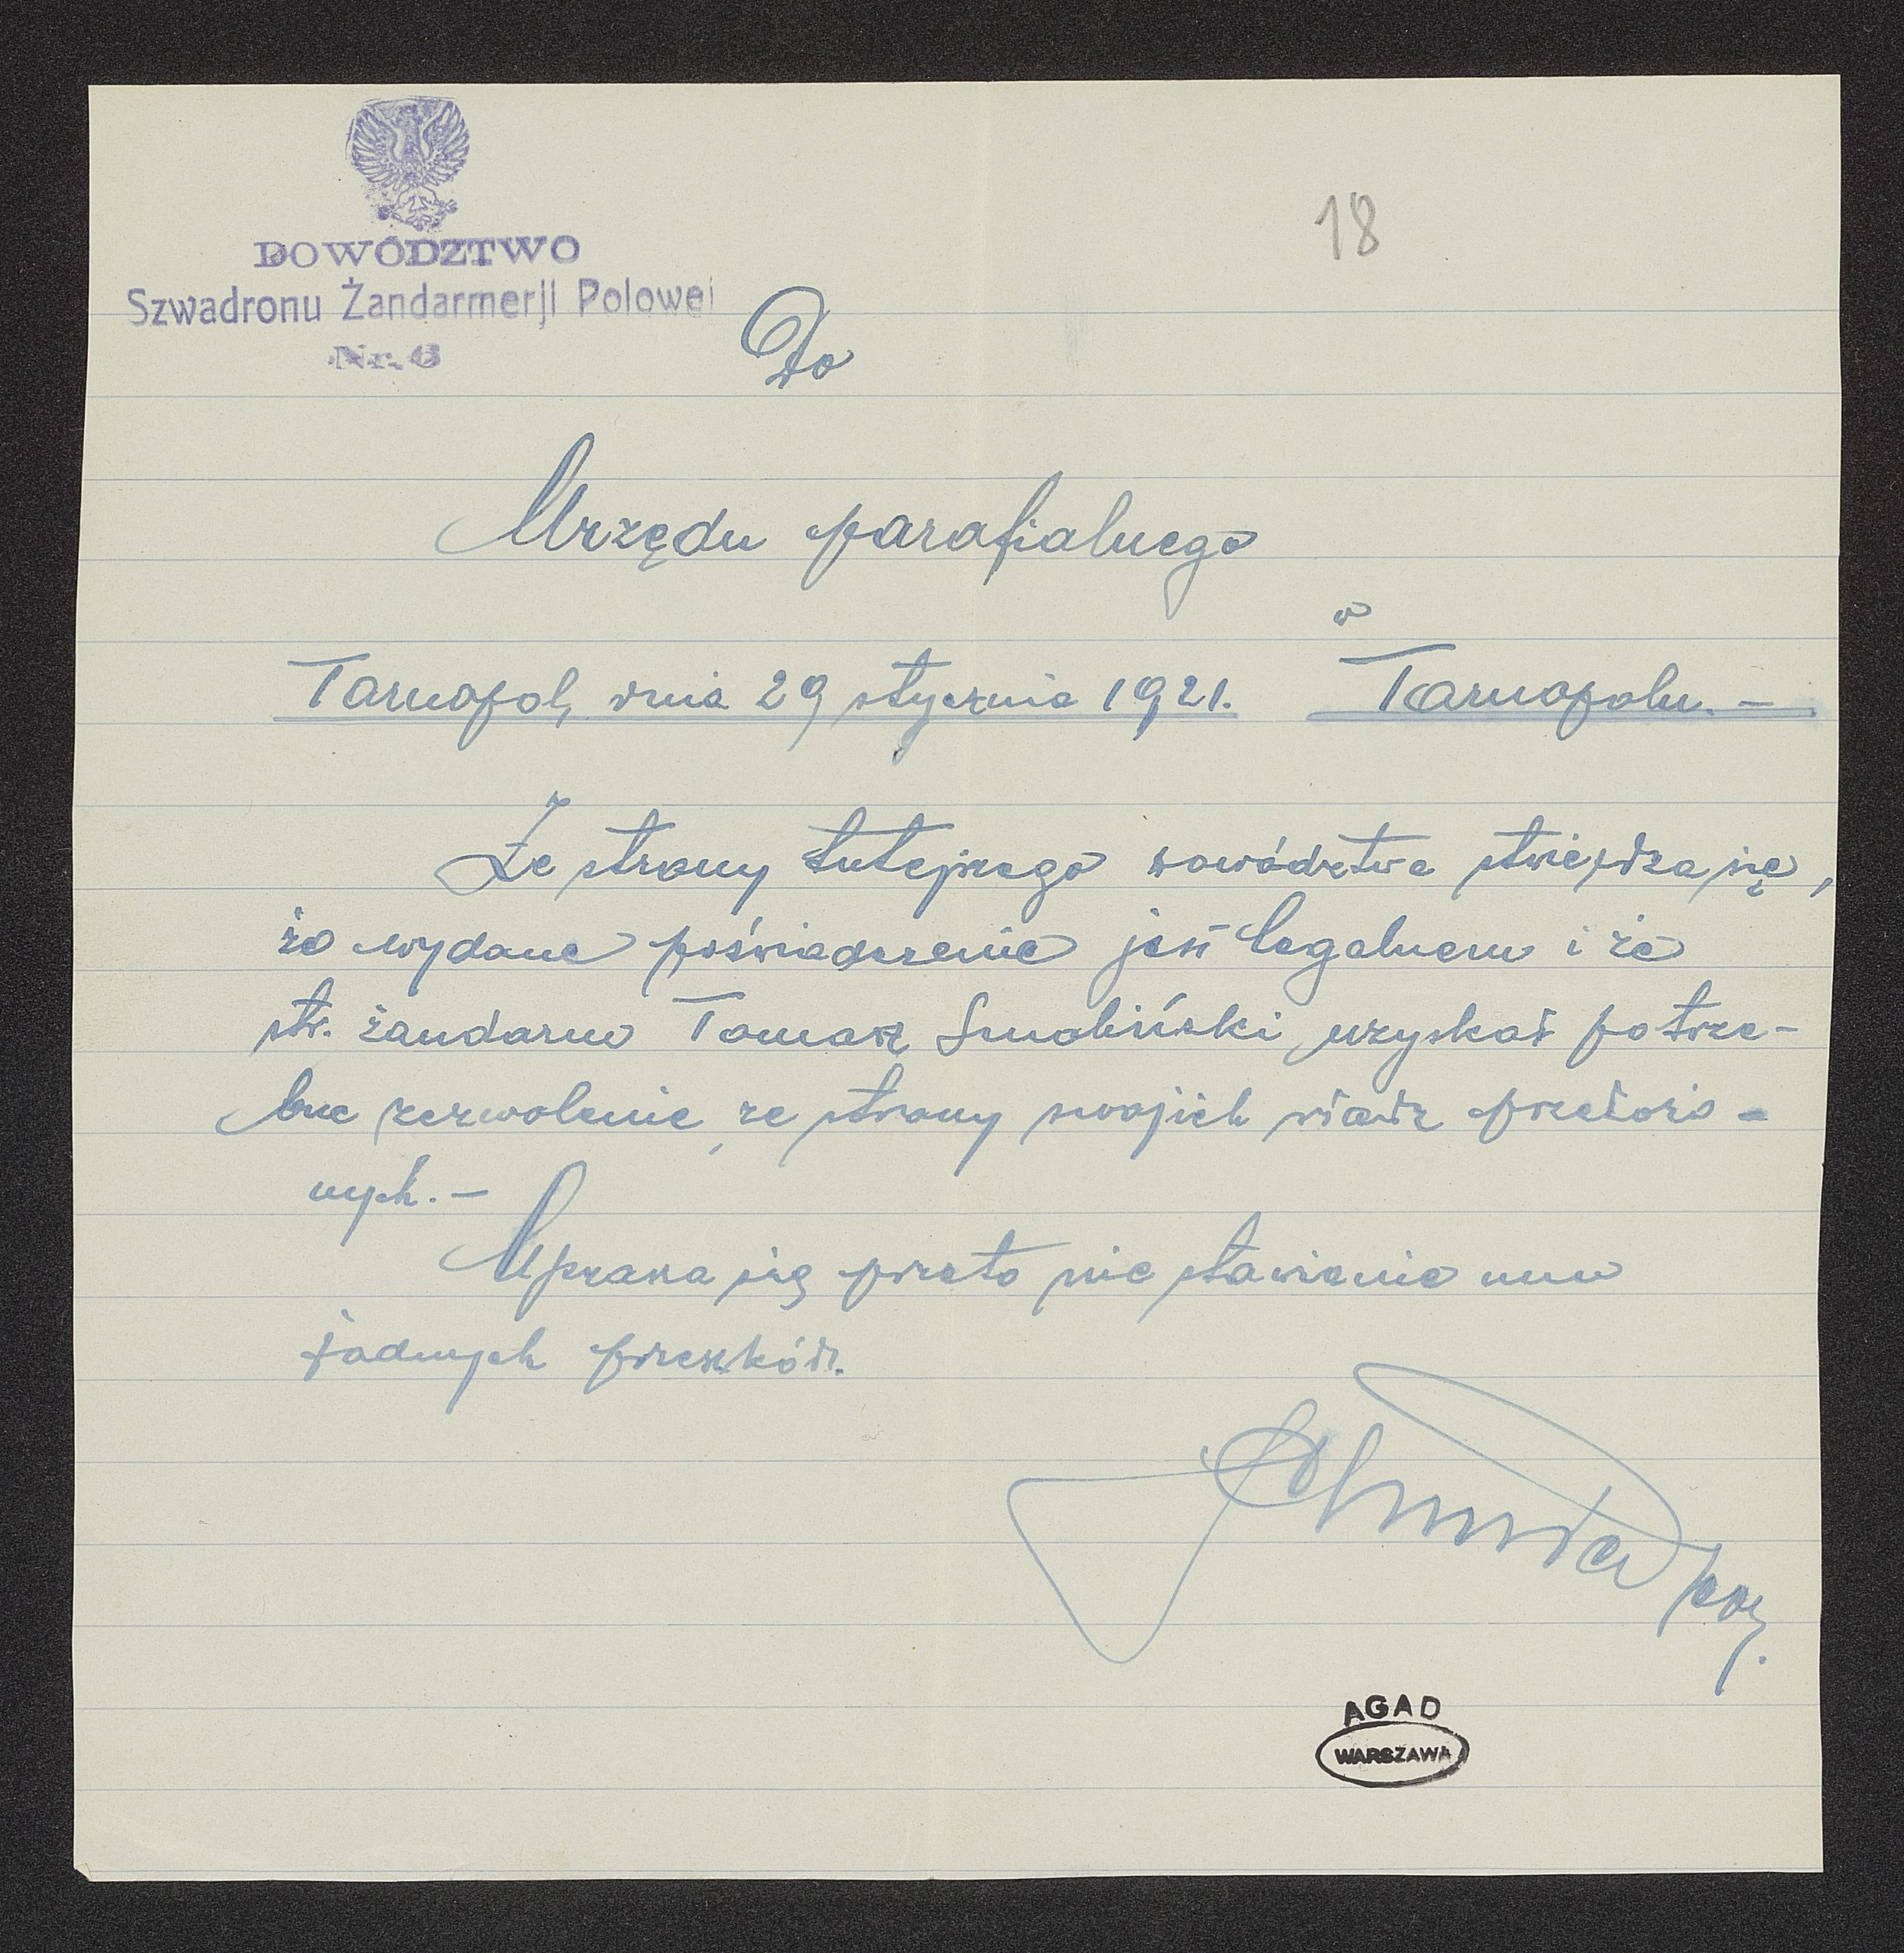 18
DOWÓDZTWO
Szwadronu Żandarmerji Polowej
Nr. 6
Do
Urzędu parafialnego
w
Tarnopol, dnia 29 stycznia 1921. Tarnopolu. –
Ze strony tutejszego dowództwa stwierdza się,
że wydane poświadczenie jest legalnem i że
st. żandarm Tomasz Smoliński uzyskał potrze-
bne zezwolenie, ze strony swojich władz przełożo-
nych. –
Uprasza się przeto nie stawianie mu
żadnych przeszkód.
por.
AGAD
WARSZAWA